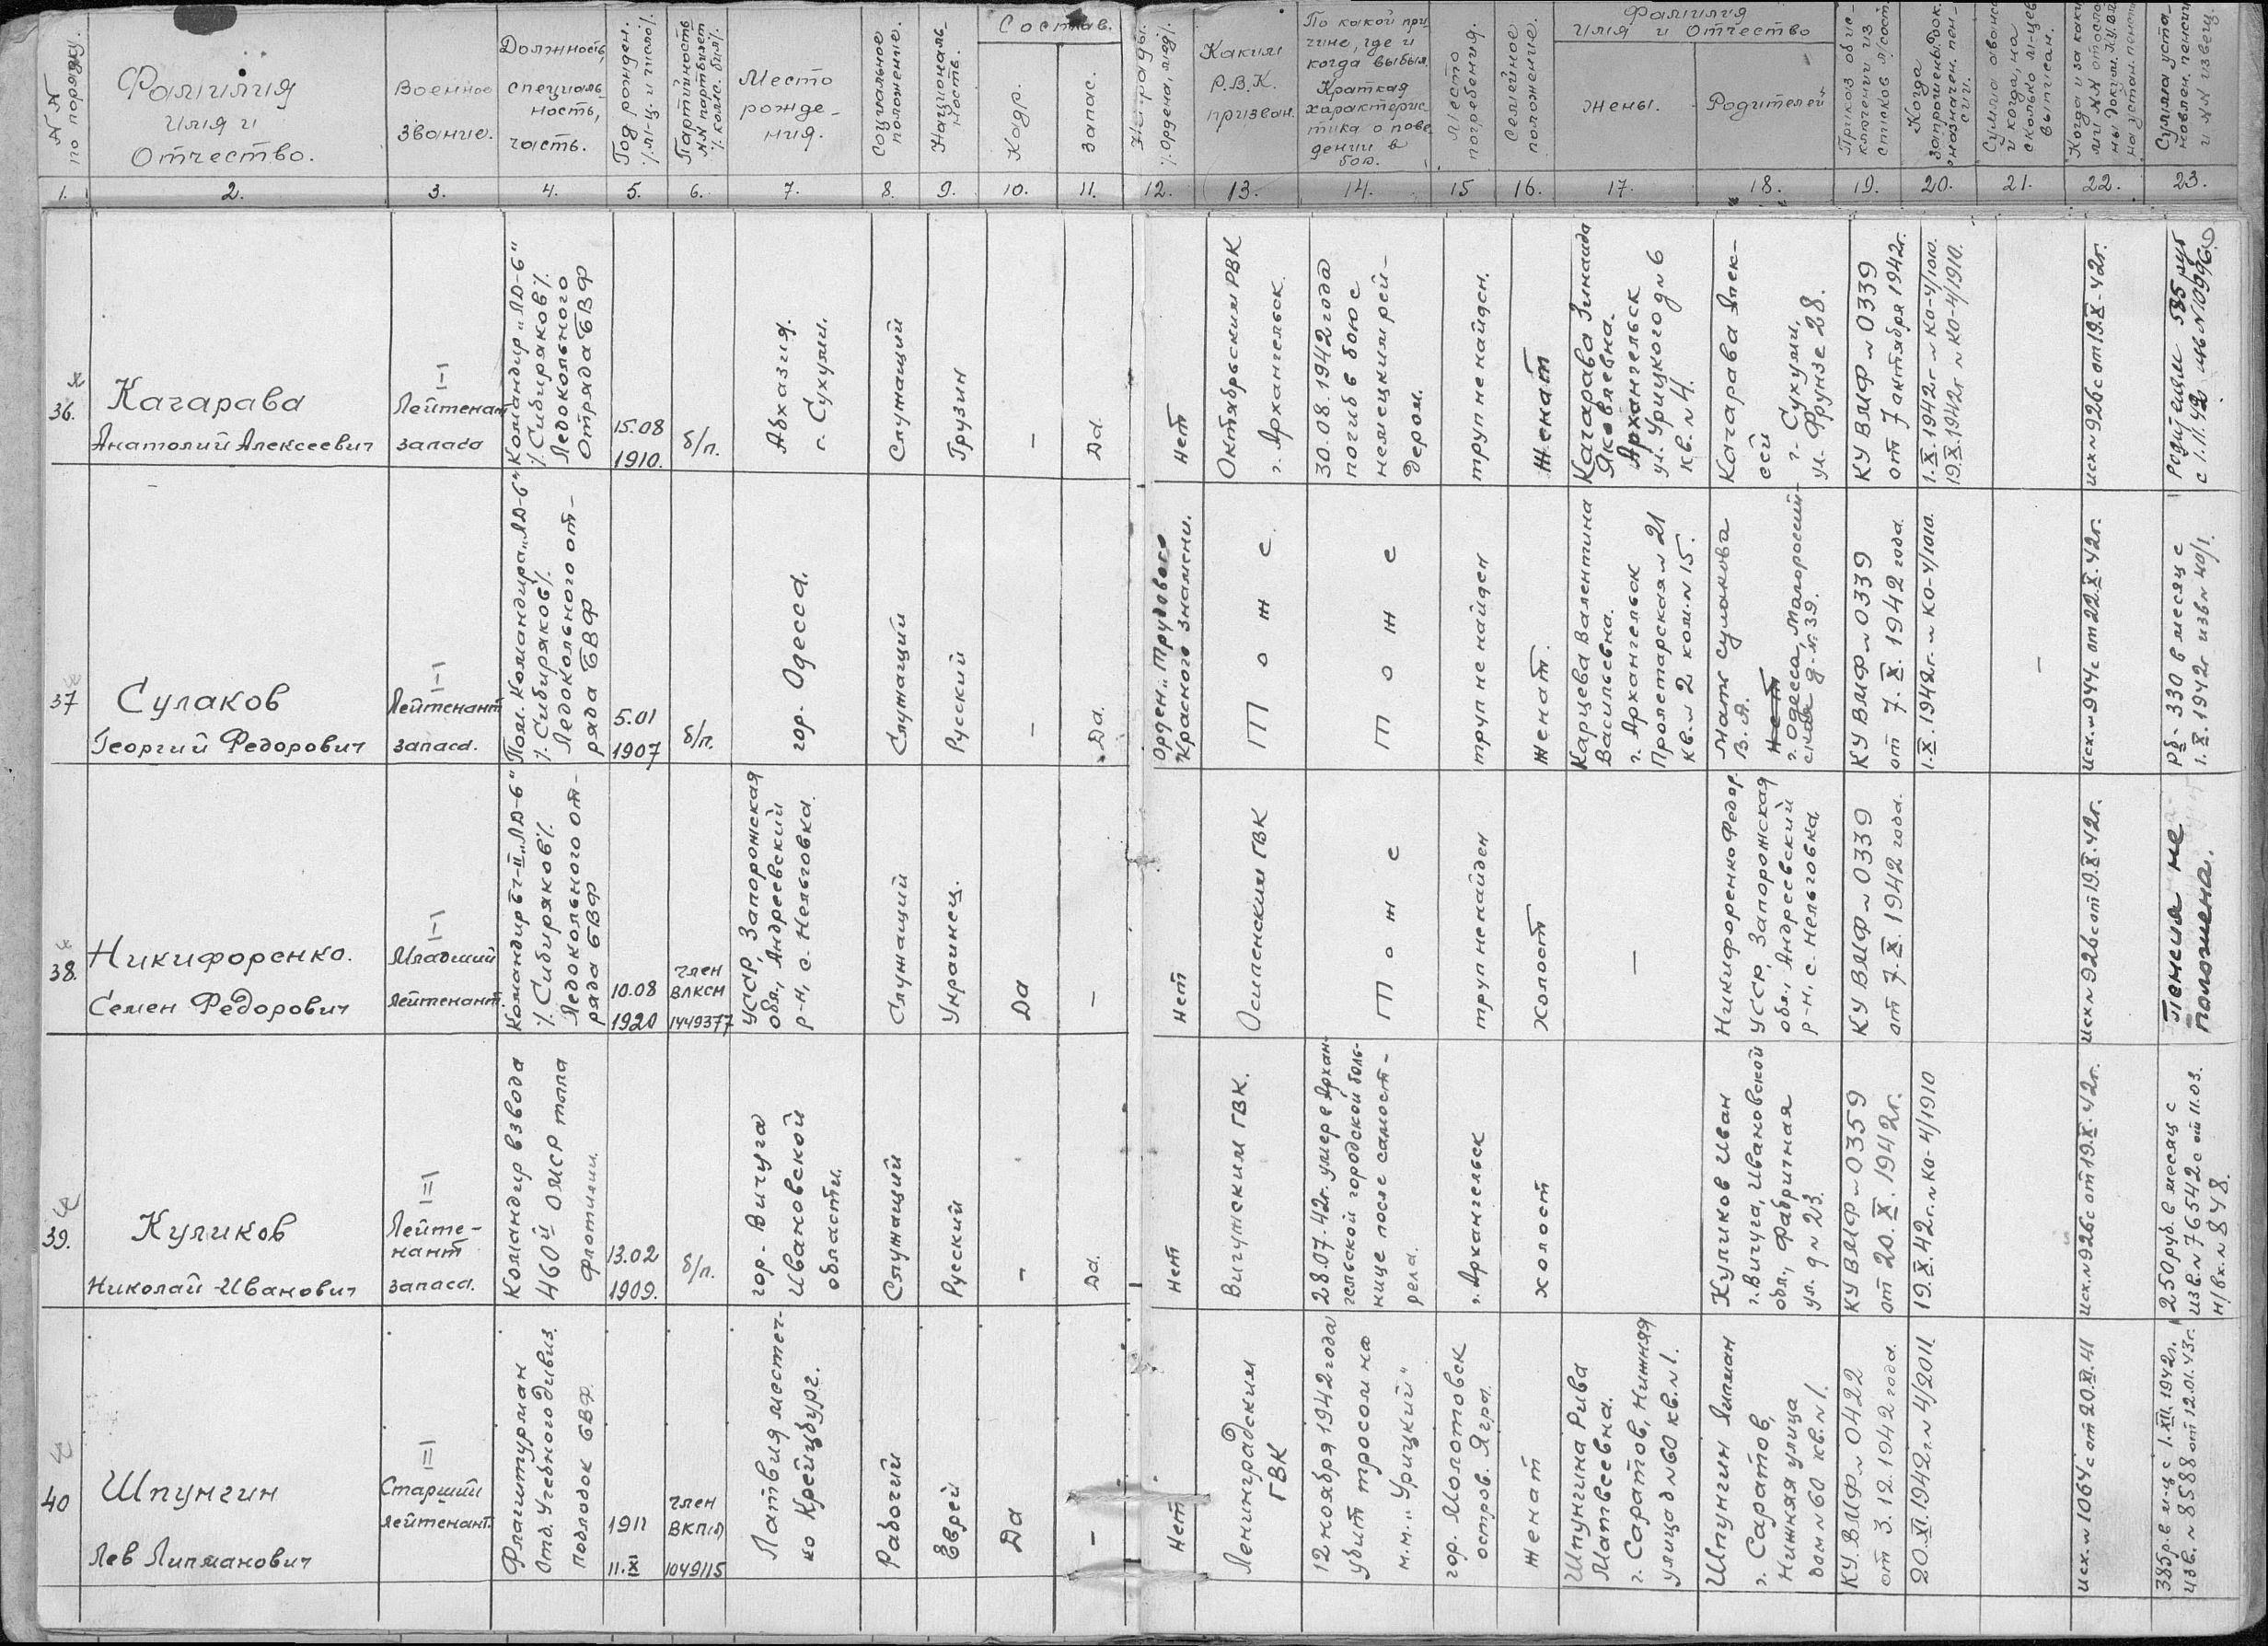 N N по порядку.
Фамилия
имя и
Отчество.
Военное
звание.
Должность,
специаль-
ность,
часть.
Год рожден.
/м-ц и число/.
Партийность
NN партбилет
/комс. бил/.
Место
рожде-
ния.
Социальное
положение.
Националь-
ность.
Состав.
Кадр.
запас.
Награды.
/ордена, мед/.
Каким
Р.В.К.
призван.
По какой при-
чине, где и
когда выбыл.
Краткая
характерис-
тика о пове-
дении в
бою.
Место
погребения.
Семейное
положение.
Фамилия
имя и Отчество
жены.
Родителей
Приказ об ис-
ключении из
списков л/сост.
Когда
запрошены док.
назначен. пен-
сии.
Сумма
и когда, на
сколько м-цев
выписан.
Сумма уста-
новлен. пенсии
и NN извещ.
1. 2. 3. 4. 5. 6. 7. 8. 9. 10. 11. 12. 13. 14. 15 16. 17. 18. 19. 20. 21. 22. 23.
36.
Качарава
Анатолий Алексеевич
I
Лейтенант
запаса
Командир „ЛД-6"
/„Сибиряков"/.
Ледокольного
Отряда БВФ
15.08
1910.
б/п.
Абхазия.
г. Сухуми.
Служащий
Грузин
–
Да.
Нет
Октябрьским РВК
г. Архангельск.
30.08.1942 года
погиб в бою с
немецким рей-
дером.
труп не найден.
Женат
Качарава Зинаида
Яковлевна.
г. Архангельск
ул. Урицкого д N 6
кв. N 4.
Качарава Алек-
сей
г. Сухуми,
ул. Фрунзе 28.
КУ ВМФ N 0339
от 7 октября 1942г.
1.X.1942г. N КО-4/1010.
19.X.1942г N КО-4/1910.
исх N 926с от 19.X-42г.
с 1.11.42
37
Сулаков
Георгий Федорович
I
Лейтенант
запаса.
Пом. Командира „ЛД-6"
/„Сибиряков"/.
Ледокольного от-
ряда БВФ
5.01
1907
б/п.
гор. Одесса.
Служащий
Русский
–
Да.
Орден „Трудового
Красного знамени.
То же
То же с
труп не найден
Женат.
Карцева Валентина
Васильевна.
г. Архангельск
Пролетарская N 21
кв. N 2 ком. N 15.
Мать Сулакова
В. Я.
Нет
г. Одесса, Малороссий-
ская д. N. 39.
КУ ВМФ N 0339
от 7.X.1942 года.
1.X.1942г. N КО-4/1010.
–
исх. N 944с от 22.X.42г.
рб. 330 в месяц с
1.X.1942г изв N 40/1.
38.
Никифоренко.
Семен Федорович
I
Младший
лейтенант.
Командир бч-II „ЛД-6"
/„Сибиряков"/.
Ледокольного от-
ряда БВФ
10.08
1920
член
ВЛКСМ
1449377
УССР, Запорожская
обл., Андреевский
р-н, с. Нельговка.
Служащий
Украинец.
Да
–
Нет
Осипенским ГВК
То же с
труп не найден
Холост
–
Никифоренко Федор.
УССР, Запорожская
обл., Андреевский
р-н, с. Нельговка.
КУ ВМФ N 0339
от 7.X.1942 года.
исх N 926с от 19.X.42г.
Пенсия не
положена.
39.
Куликов
Николай Иванович
II
Лейте-
нант
запаса.
Командир взвода
460й ОМСР тыла
Флотилии.
13.02
1909.
б/п.
гор. Вичуга
Ивановской
области.
Служащий
Русский
–
Да.
Нет
Вигужским ГВК.
28.07.42г. умер в Архан-
гельской городской боль-
нице после самост-
рела.
г. Архангельск
холост
Куликов Иван
г. Вичуга, Ивановской
обл., Фабричная
ул. д N 23.
КУ ВМФ N 0359
от 20.X.1942г.
19.X.42г. N КО-4/1910
исх. N 926с от 19.X.42г.
250 руб. в месяц с
изв. N 76542с от 11.03.
н/вх. N 848.
40
Шпунгин
Лев Липманович
II
Старший
лейтенант.
Флагштурман
Отд. Учебного дивиз.
подлодок БВФ.
1911
11.X
член
ВКП(б)
1049115
Латвия местеч-
ко Крейцбург.
Рабочий
Еврей
Да
–
Нет
Ленинградским
ГВК
12 ноября 1942 года
убит тросом на
м.м. „Урицкий"
гор. Молотовск
остров. Ягры.
женат
Шпунгина Рива
Матвеевна.
г. Саратов, Нижняя
улица д N 60 кв. N 1.
Шпунгин Липман
г. Саратов,
Нижняя улица
дом N 60 кв. N 1.
КУ. ВМФ N 0422
от 3.12.1942 года.
20.XI.1942г. N 4/2011.
исх. N 1064с от 20.XI.41
385р. в м-ц с 1.XII.1942г.
изв. N 8588 от 12.01.43г.